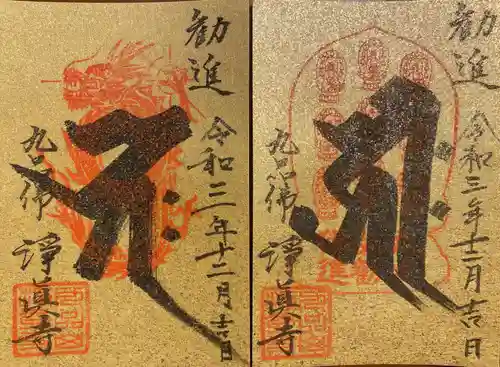 勧進
令和三年十二月吉日
九品仏
淨眞寺
勧進
令和三年十二月吉日
九品仏
淨眞寺